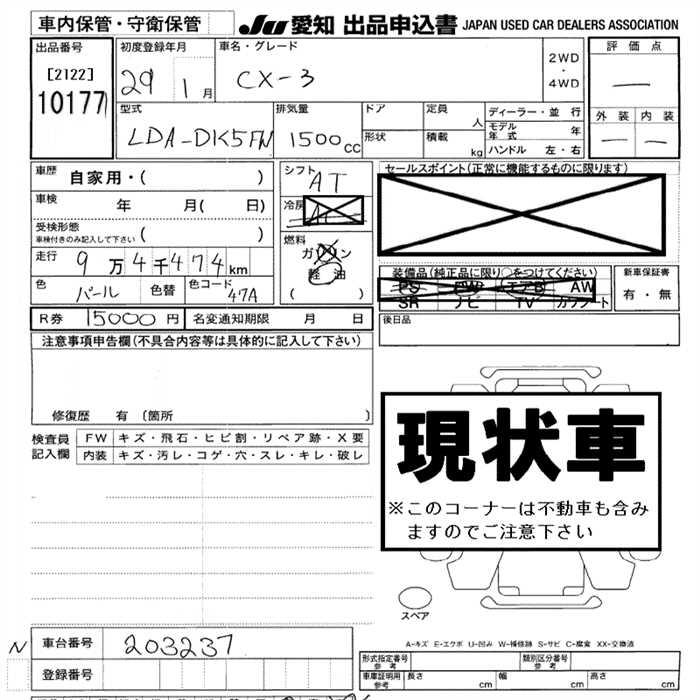 車内保管・守衛保管
JU 愛知 出品申込書 JAPAN USED CAR DEALERS ASSOCIATION
出品番号
[2122]
10177
初度登録年月
29 1月
車名・グレード
CX-3
2WD
・
4WD
評価点
―
外装 内装
― ―
型式
LDA-DK5FW
排気量
1500cc
ドア
形状
定員 人
積載 kg
ディーラー・並行
モデル年式 年
ハンドル 左・右
車歴 自家用・( )
車検 年 月( 日)
受検形態
車検付きのみ記入して下さい ( )
走行 9万4千474km
色 パール 色替 色コード 47A
シフト AT
冷房
燃料
ガソリン
軽油
( )
セールスポイント(正常に機能するものに限ります)
装備品(純正品に限り○をつけてください)
PS PW エアB AW
SR ナビ TV カワシート
新車保証書
有・無
R券 15000円 名変通知期限 月 日
後日品
注意事項申告欄(不具合内容等は具体的に記入して下さい)
修復歴 有 (箇所 )
検査員記入欄
FW キズ・飛石・ヒビ割・リペア跡・X要
内装 キズ・汚レ・コゲ・穴・スレ・キレ・破レ
現状車
※このコーナーは不動車も含み
ますのでご注意下さい
スペア
A-キズ E-エクボ U-凹み W-補修跡 S-サビ C-腐食 XX-交換済
N 車台番号 203237
登録番号
形式指定番号 参考
類別区分番号 参考
車庫証明用 参考 長さ cm 幅 cm 高さ cm